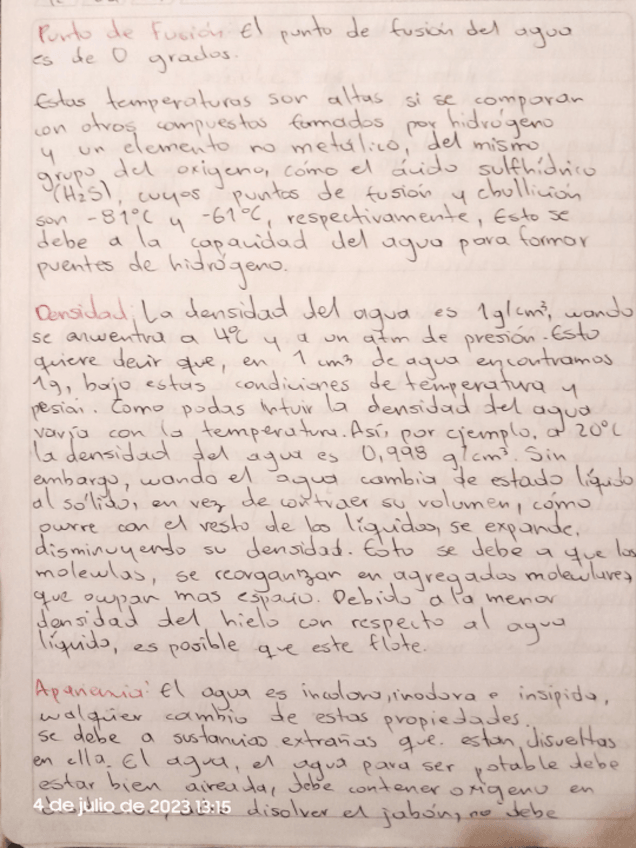 Punto de Fusión: El punto de fusión del agua
es de 0 grados.
Estas temperaturas son altas si se comparan
con otros compuestos formados por hidrógeno
y un elemento no metálico, del mismo
grupo del oxigeno, cómo el ácido sulfhídrico
(H2S), cuyos puntos de fusión y ebullición
son -81°C y -61°C, respectivamente, Esto se
debe a la capacidad del agua para formar
puentes de hidrógeno.
Densidad: La densidad del agua es 1g/cm³, cuando
se encuentra a 4°C y a un atm de presión. Esto
quiere decir que, en 1 cm3 de agua encontramos
1g, bajo estas condiciones de temperatura y
pesión. Como podas intuir la densidad del agua
varía con la temperatura. Así, por ejemplo, a 20°C
la densidad del agua es 0,998 g/cm³. Sin
embargo, cuando el agua cambia de estado líquido
al sólido, en vez de contraer su volumen, cómo
ocurre con el resto de los líquidos, se expande,
disminuyendo su densidad. Esto se debe a que las
moleculas, se reorganizan en agregados moleculares
que ocupan mas espacio. Debido a la menor
densidad del hielo con respecto al agua
líquido, es posible que este flote.
Apariencia: El agua es incolora, inodora e insipida,
cualquier cambio de estas propiedades.
se debe a sustancias extrañas que. estan disueltas
en ella. El agua, el agua para ser potable debe
estar bien aireada, debe contener oxígeno en
disolver el jabón, no debe
4 de julio de 2023 13:15